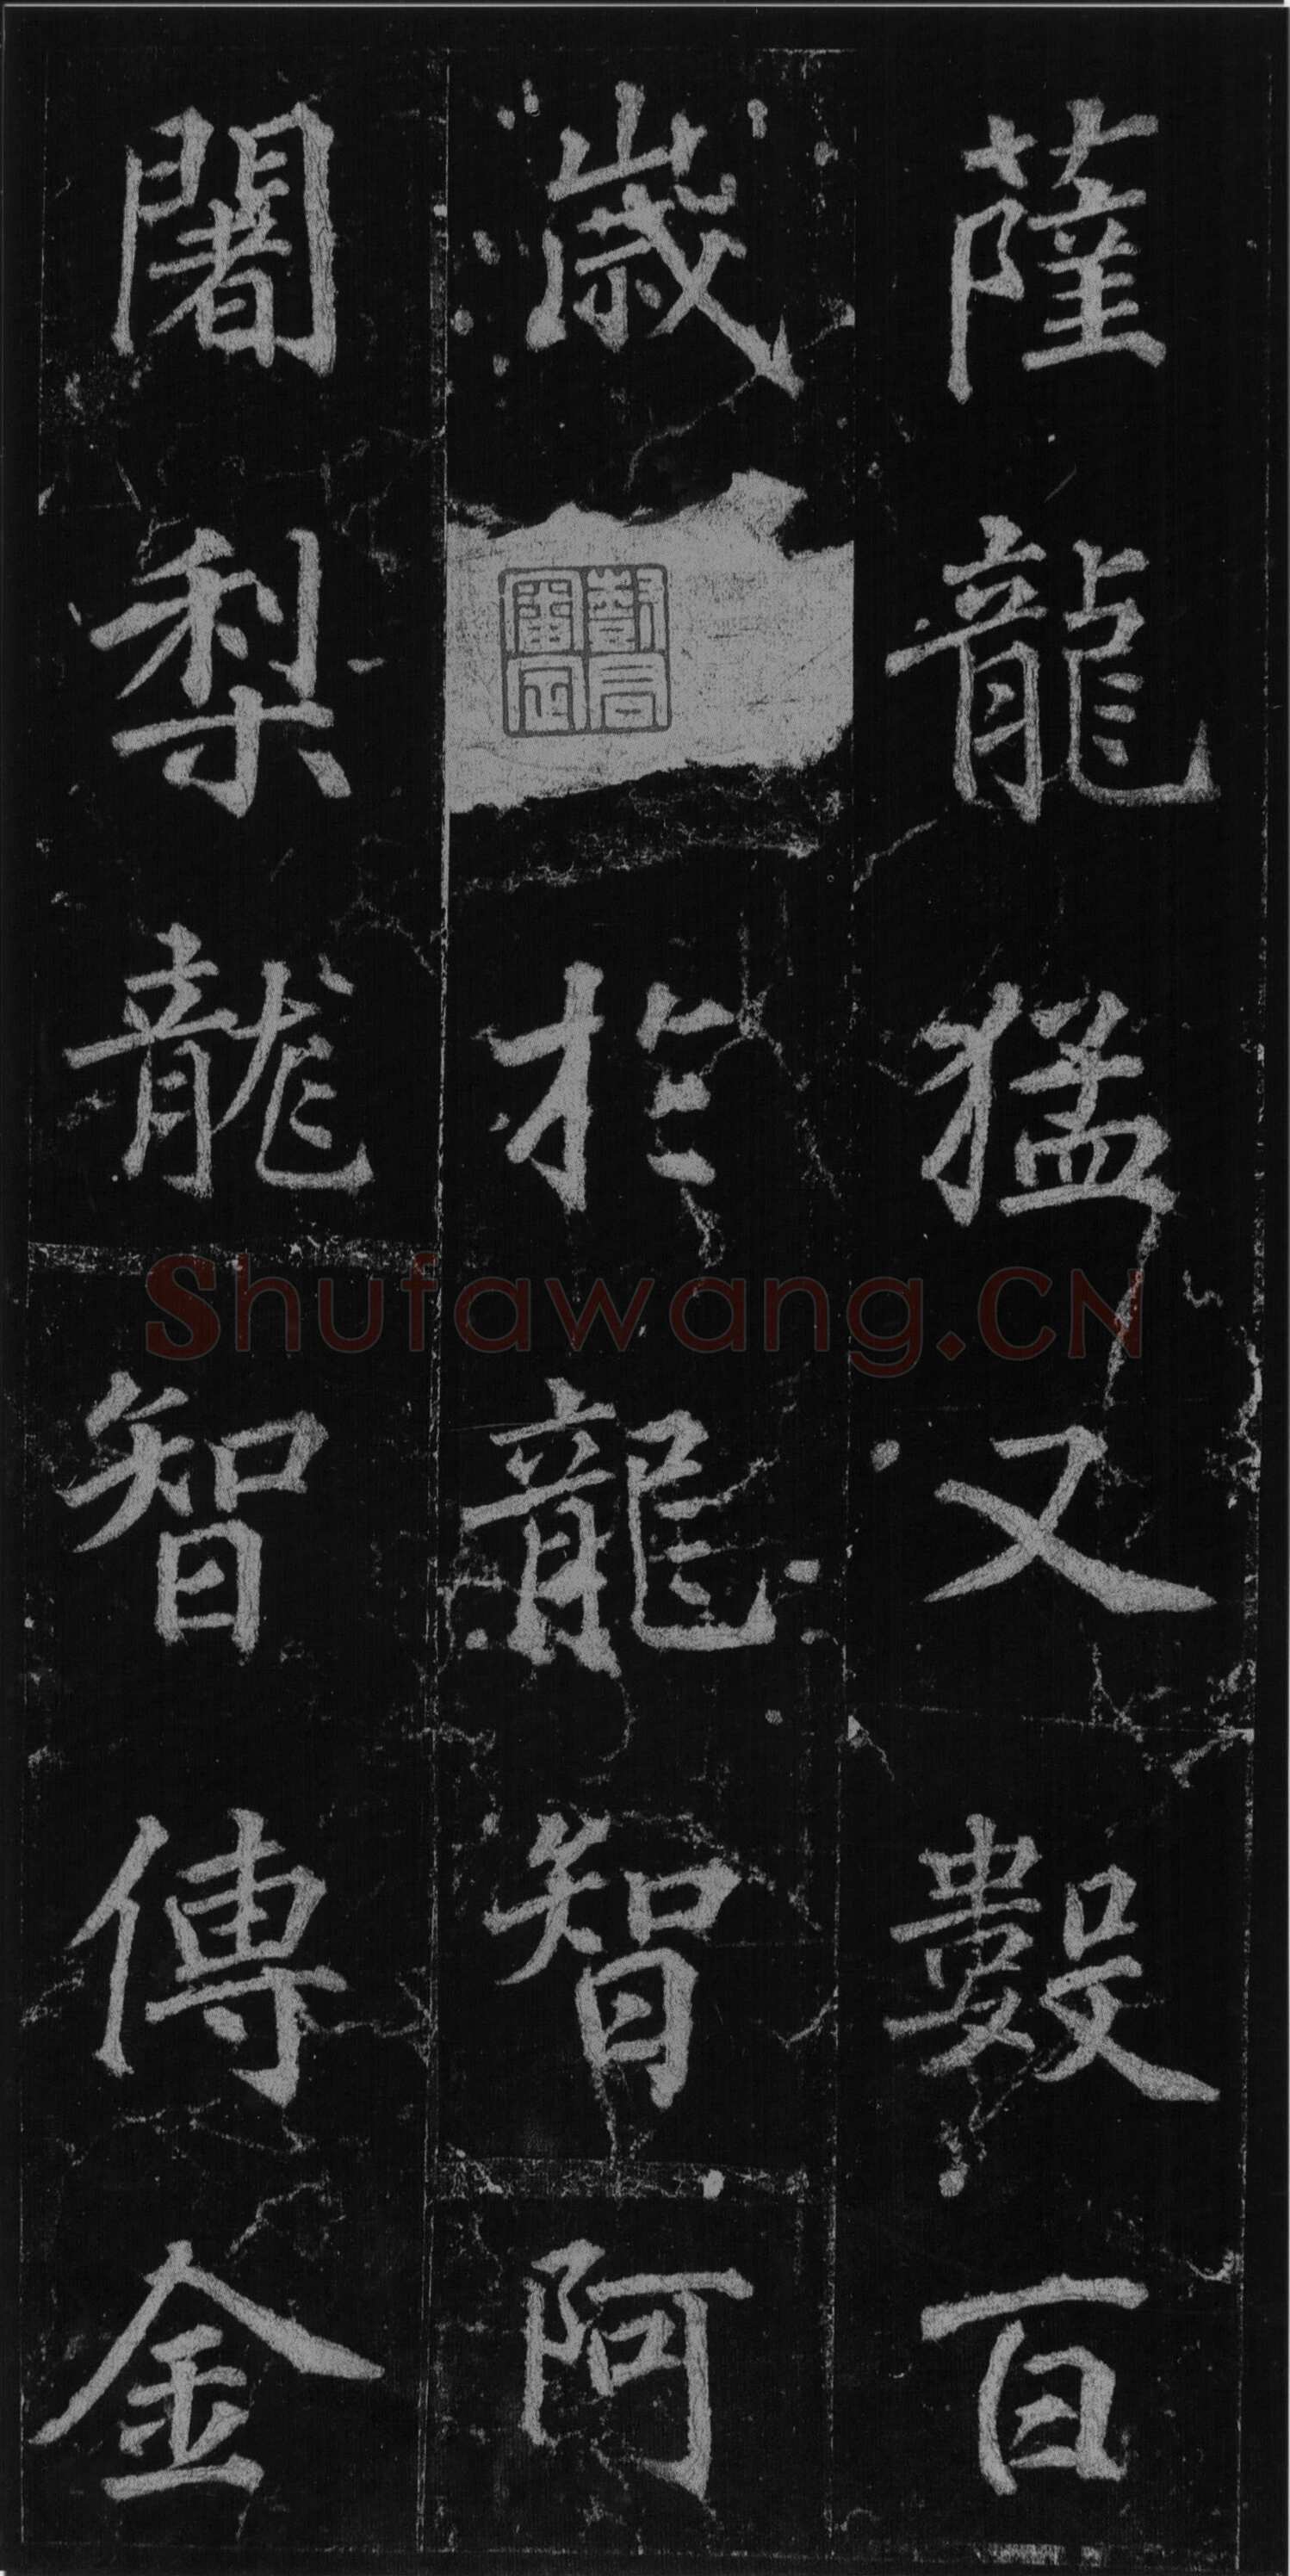 薩龍猛又數百
歲於龍智阿
闍梨龍智傳金
Shufawang.CN